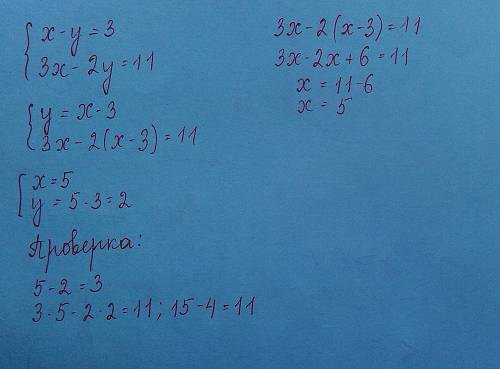 x-y=3
3x-2y=11
y=x-3
3x-2(x-3)=11
x=5
y=5-3=2
Проверка:
5-2=3
3·5-2·2=11; 15-4=11
3x-2(x-3)=11
3x-2x+6=11
x=11-6
x=5